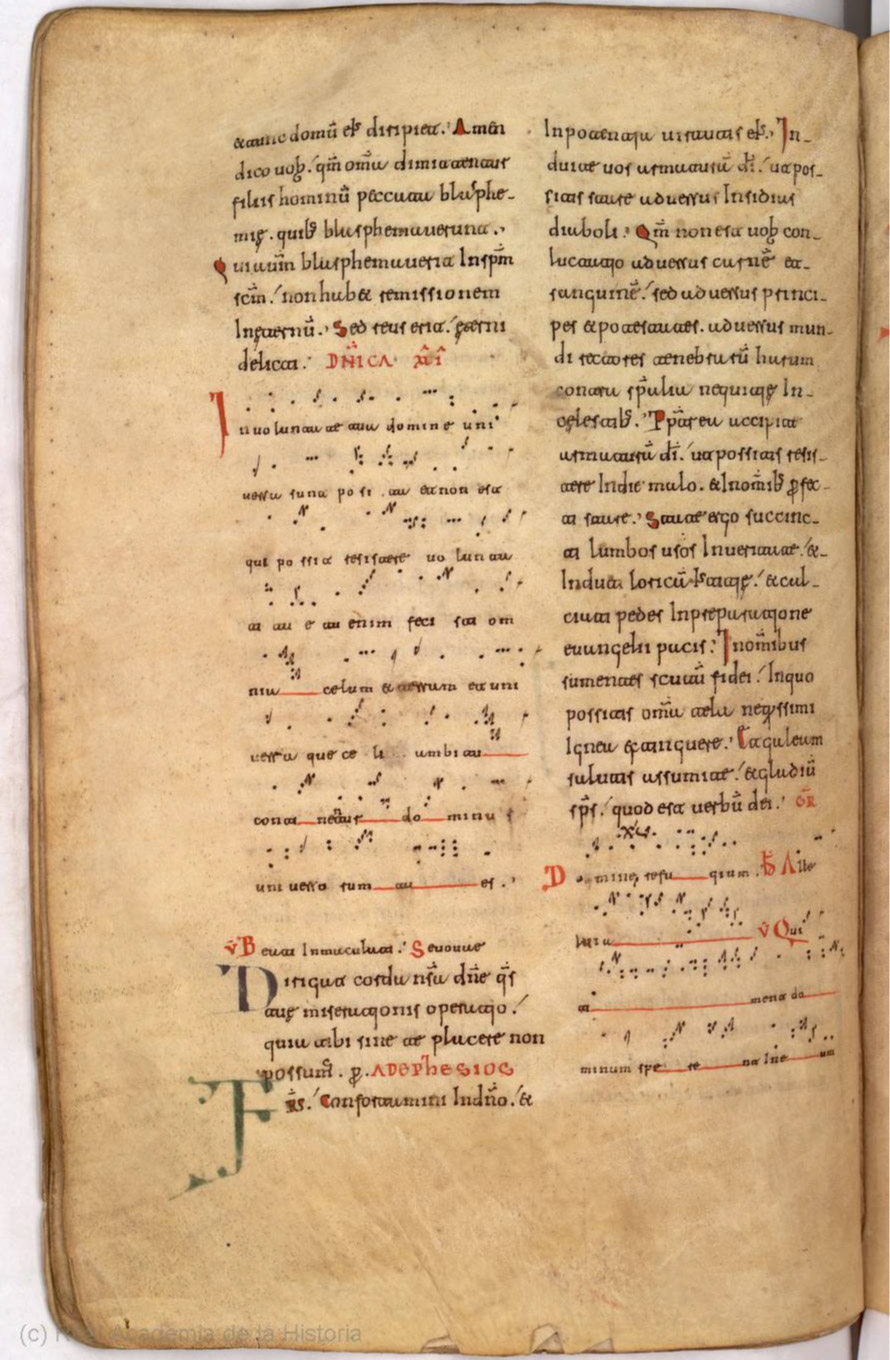 & tunc domū ei' diripiet. Amen
dico vob. qm̄ om̄a dimittentur
filiis hominū peccata blasphe-
mię. quib' blasphemaverunt.
Qui autm̄ blasphemaverit Inspm̄
scm̄. non hab& remissionem
Inęternū. Sed reus erit. ęterni
delicti. DN̄ICA XXI
Involuntate tua domine uni
versa sunt po si ta et non est
qui possit resistere voluntati
ti tu e tu enim feci sti om
nia celum & terram et uni
versa que ce li ambi tu
conti nentur do minus
universo rum tu es.
V̄ Beati Inmaculati. Sevovae
Dirige corda nr̄a dn̄e qs
tuę miserationis operatio.
quia tibi sine te placere non
possum'. p. AD EPHESIOS
FRs. Confortamini Indn̄o. &
Inpotentia virtutis ei'. In-
duite vos armaturā di. ut pos-
sitis stare adversus Insidias
diaboli. Qm̄ non est vob con-
luctatio adversus carnē et
sanguinē. sed adversus princi-
pes & potestates. adversus mun-
di rectores tenebrarū harum
contra spūalia nequitię In
cęlestib'. Pptrea accipite
armaturā di. ut possitis resis-
tere Indie malo. & Inom̄ib' pfec-
ti stare. State ergo succinc-
ti lumbos vros Inveritate. &
Induti loricā Iustitię. & cal-
ciati pedes Inpreparatione
evangelii pacis. Inom̄ibus
sumentes scutū fidei. Inquo
possitis om̄a tela neqssimi
Ignea extinguere. Et galeam
salutis assumite. & gladiū
sps. quod est verbū dei. GR
Domine, refu gium. Ꝟ Alle
luia V̄ Qui
ti ment do
minum spe re nt Ine um
(c) Real Academia de la Historia